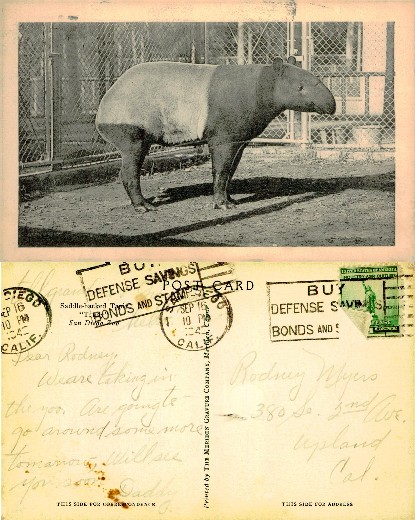 BUY
DEFENSE SAVINGS
BONDS AND STAMPS
POST CARD
BUY
DEFENSE SAVINGS
BONDS AND S
UNITED STATES OF AMERICA
DIEGO
SEP 16
10 PM
CALIF.
DIEGO
SEP 16
10 PM
CALIF.
Saddle-backed Tapir
San Diego Zoo
Dear Rodney:
We are taking in
the zoo. Are going to
go around some more
tomorrow. Will see
you soon.
Daddy
Printed by THE MERIDEN GRAVURE COMPANY, Meriden, Conn.
Rodney Myers
380 So. 2nd Ave.
Upland
Cal.
THIS SIDE FOR CORRESPONDENCE
THIS SIDE FOR ADDRESS